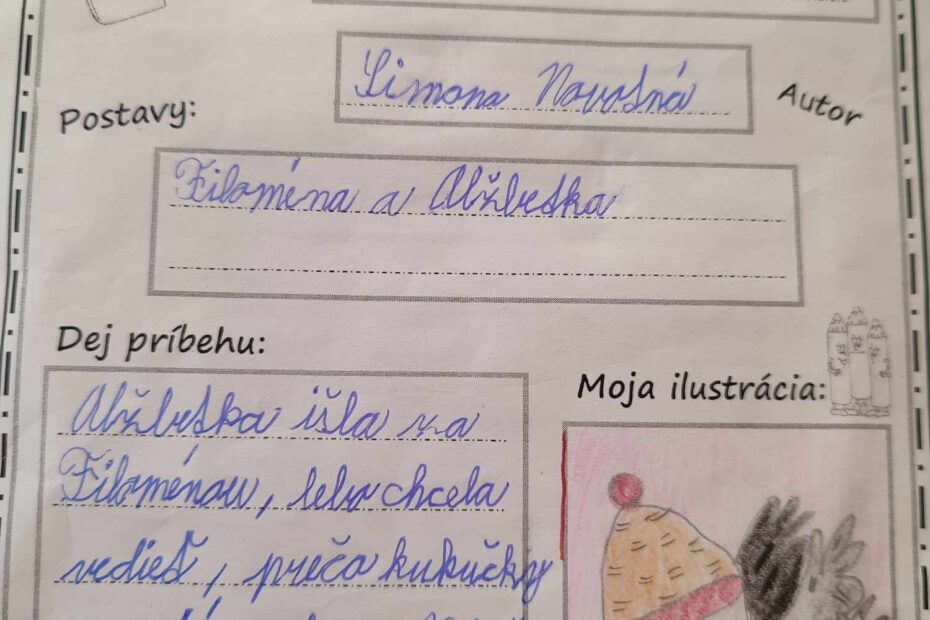 Simona Novotná
Autor
Postavy:
Filoména a Alžbetka
Dej príbehu:
Moja ilustrácia:
Alžbetka išla za
Filoménou, lebo chcela
vedieť, prečo kukučky